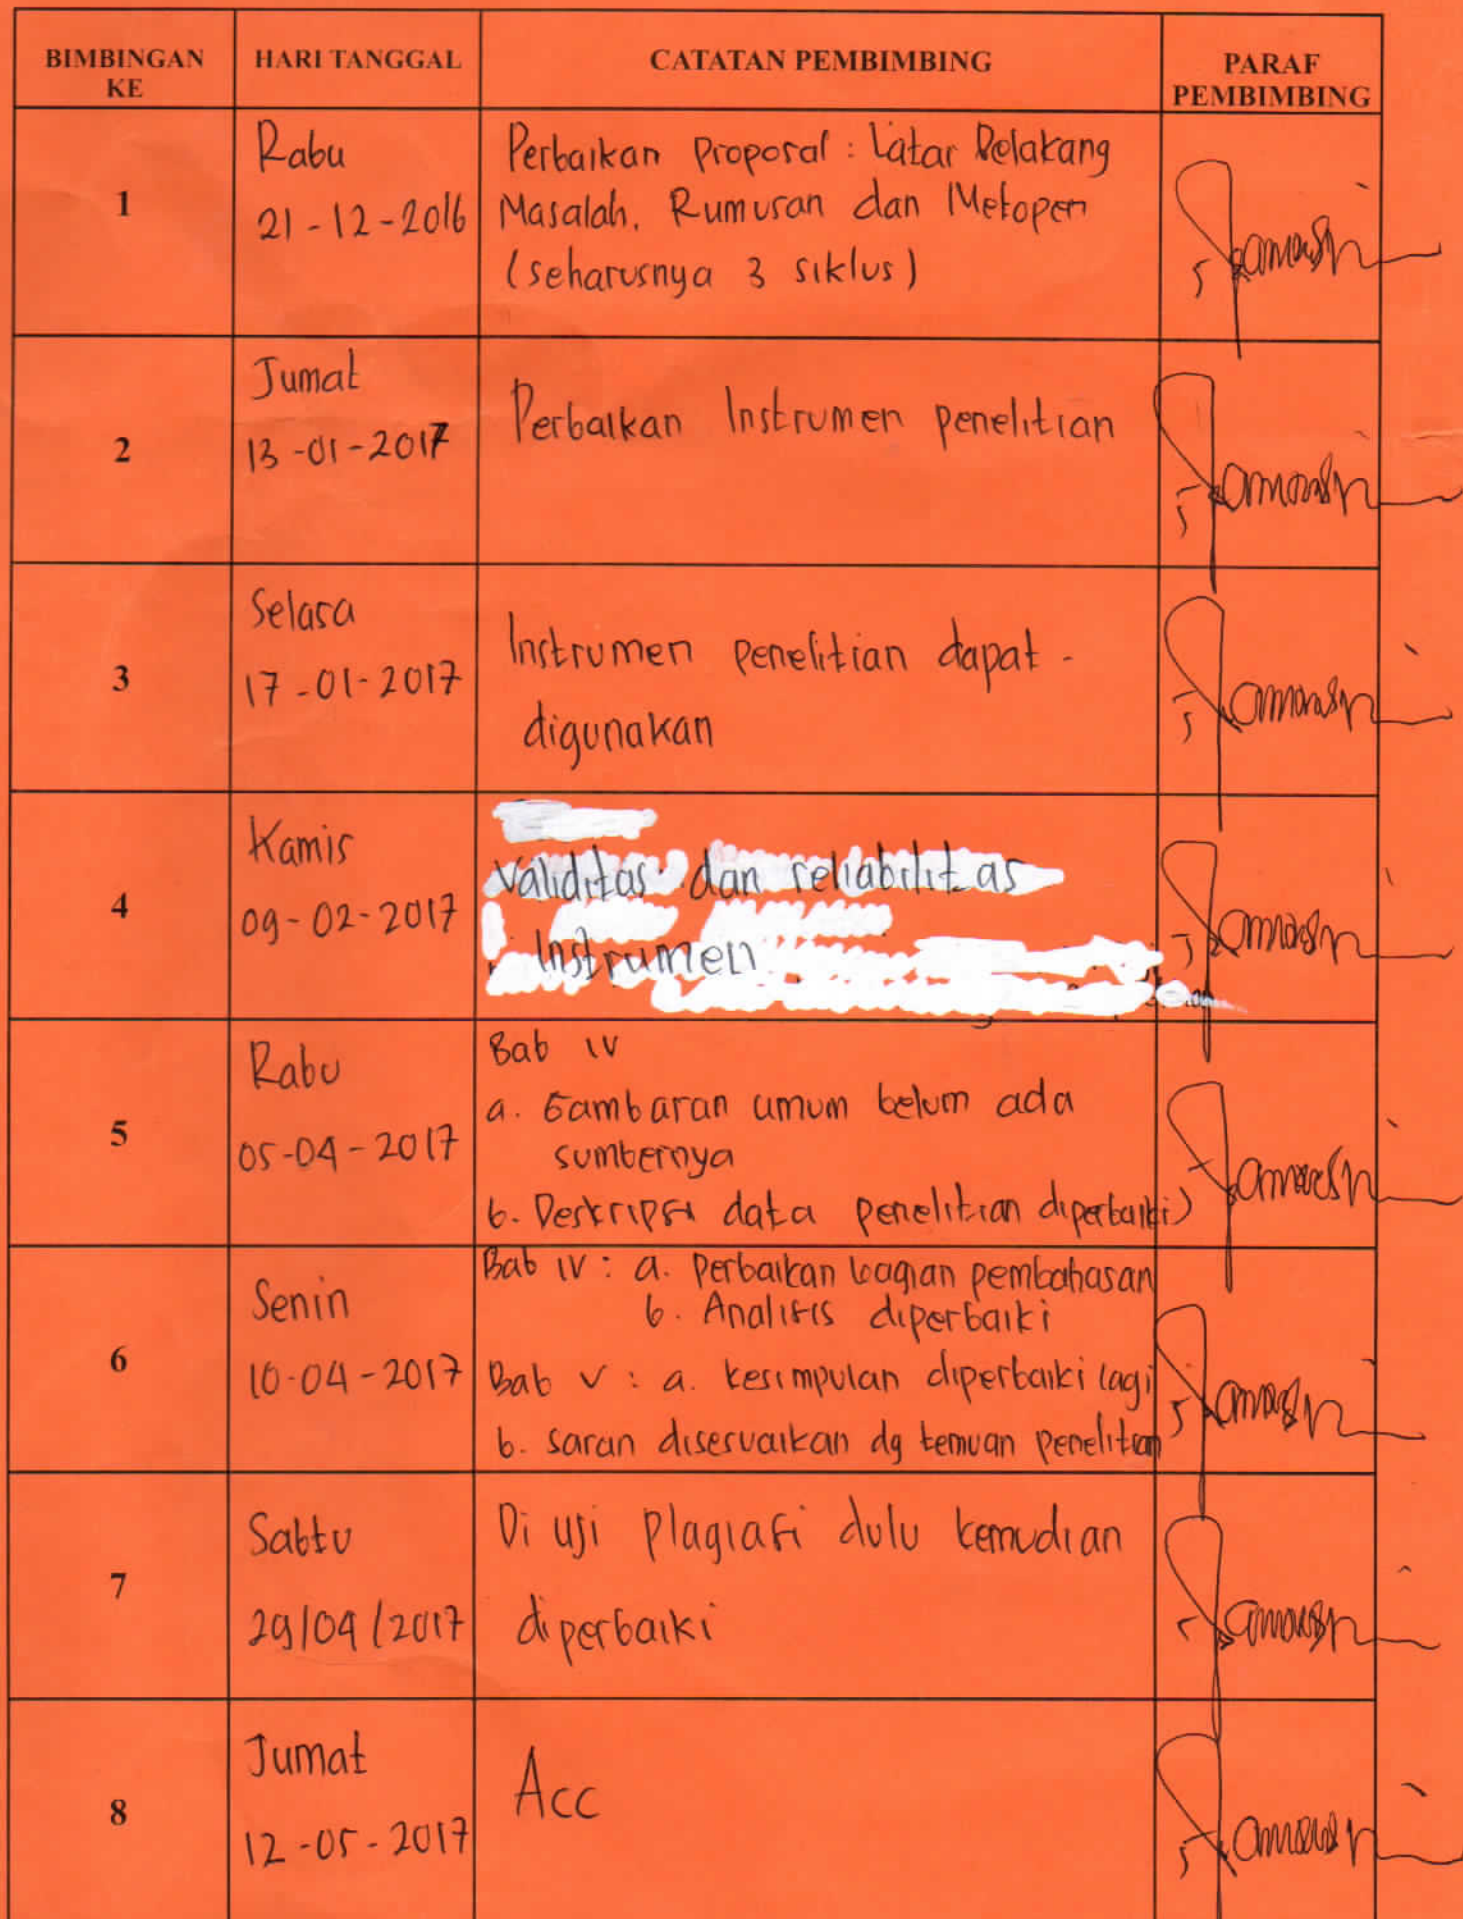 BIMBINGAN KE
HARI TANGGAL
CATATAN PEMBIMBING
PARAF PEMBIMBING
1
Rabu
21-12-2016
Perbaikan Proposal : Latar Belakang
Masalah, Rumusan dan Metopen
(seharusnya 3 siklus)
2
Jumat
13-01-2017
Perbaikan Instrumen penelitian
3
Selasa
17-01-2017
Instrumen penelitian dapat -
digunakan
4
Kamis
09-02-2017
Validitas dan reliabilitas
Instrumen
5
Rabu
05-04-2017
Bab IV
a. Gambaran umum belum ada
sumbernya
b. Deskripsi data penelitian diperbaiki)
6
Senin
10-04-2017
Bab IV : a. Perbaikan bagian pembahasan
b. Analisis diperbaiki
Bab V : a. kesimpulan diperbaiki lagi
b. saran disesuaikan dg temuan penelitian
7
Sabtu
29/04/2017
Di uji plagiasi dulu kemudian
diperbaiki
8
Jumat
12-05-2017
Acc